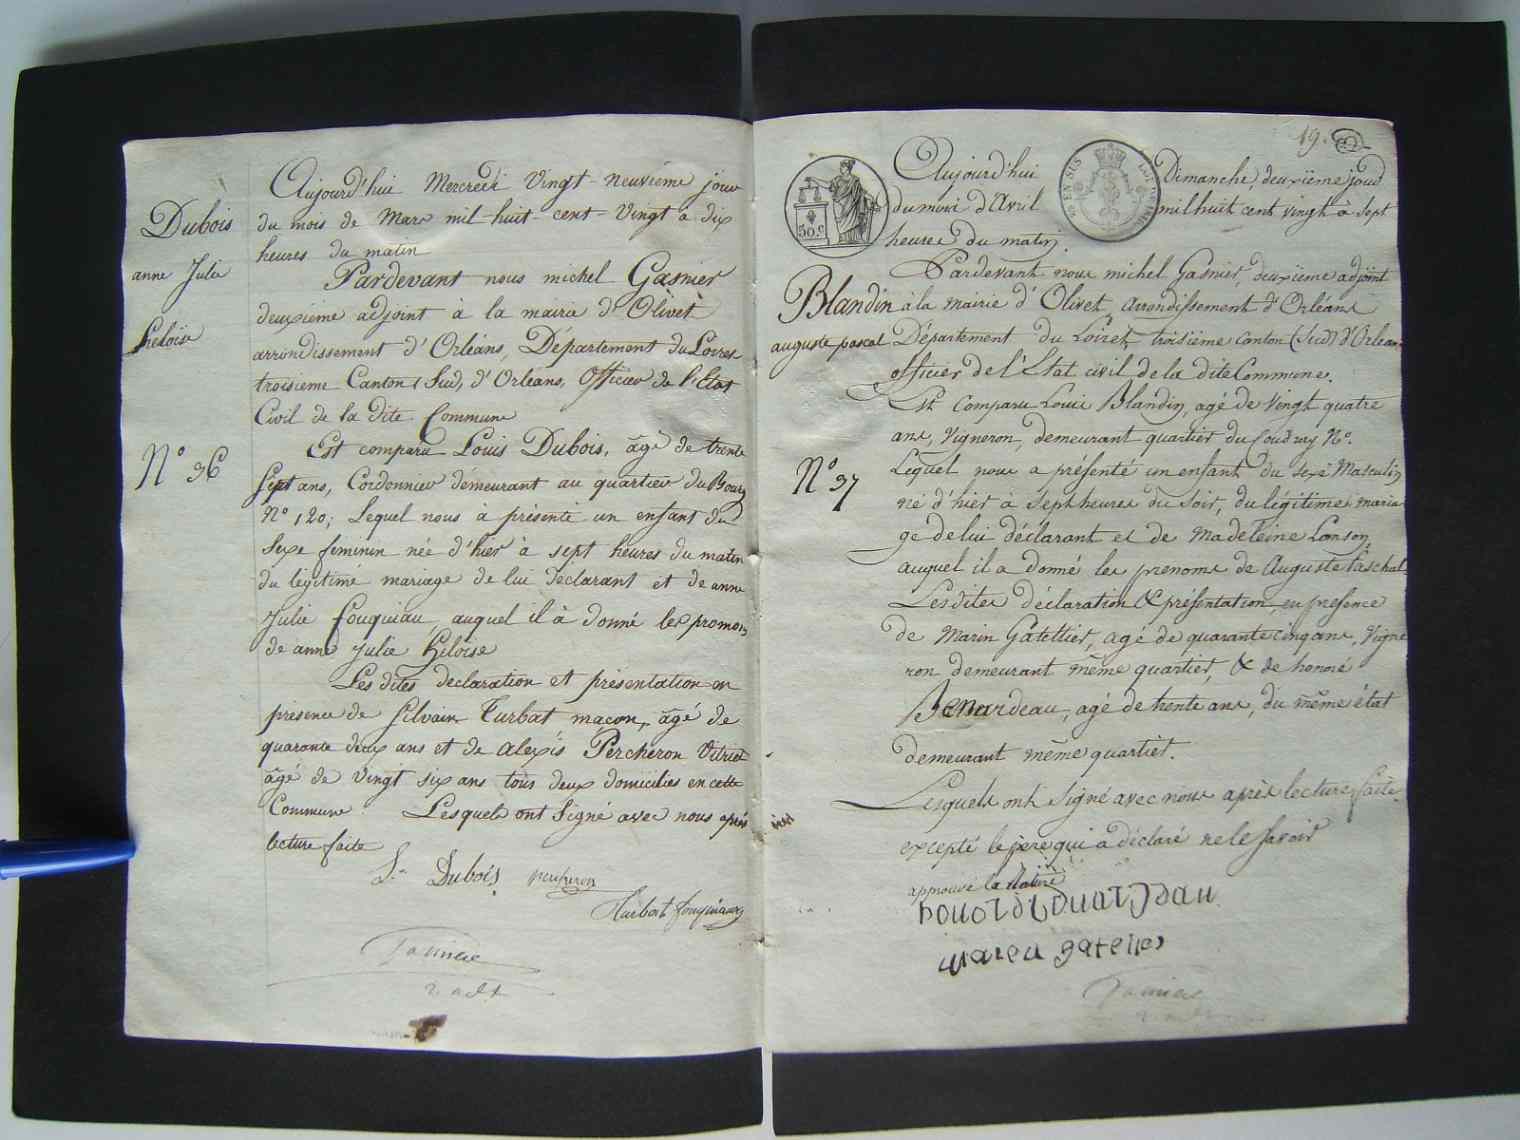 Aujourd'hui Mercredi Vingt-neuvième jour
du mois de Mars mil-huit-cent-Vingt à dix
heures du matin
Pardevant nous michel Gasnier
deuxieme adjoint à la mairie d'Olivet
arrondissement d'Orléans, Département du Loiret
troisieme Canton (Sud) d'Orléans, Officier de l'Etat
Civil de la dite Commune
Dubois
anne Julie
heloïse
N° 36
Est comparu Louis Dubois, âgé de trente
Sept ans, Cordonnier demeurant au quartier du Bourg
N° 120; Lequel nous à présenté un enfant du
Sexe feminin née d'hier à sept heures du matin
du légitimé mariage de lui déclarant et de anne
Julie fouquiau, auquel il à donné les prenoms
de anne Julie Héloise
Les dites declaration et présentation en
présence de Silvain Turbat macon, âgé de
quarante deux ans et de alexis Percheron Vitrier
âgé de Vingt six ans tous deux domiciliés en cette
Commune Lesquels ont Signé avec nous après
lecture faite
L.s Dubois percheron
Turbat fouquiau
2. adt
19.
50 c
Aujourd'hui Dimanche, deuxième jour
du mois d'Avril mil huit cent vingt à sept
heures du matin.
Pardevant nous michel Gasnier, deuxième adjoint
Blandin
auguste pascal
N° 37
à la mairie d'Olivet, arrondissement d'Orléans
Département du Loiret, troisième Canton (Sud) d'Orléans
officier de l'Etat civil de la dite Commune.
Est Comparu Louis Blandin, agé de vingt quatre
ans, Vigneron, demeurant quartier du Coudray N°.
Lequel nous a présenté un enfant du sexe Masculin
né d'hier à sept heures du Soir, du légitime maria
ge de lui déclarant et de Madeleine Lanson
auquel il a donné les prenoms de Auguste Paschal.
Les dites déclaration & présentation, en presence
de Marin Gatellier, agé de quarante cinq ans, Vigne
ron demeurant même quartier, & de honoré
Benardeau, agé de trente ans, du même état
demeurant même quartier.
Lesquels ont signé avec nous après lecture faite.
excepté le pere qui a déclaré ne le savoir
approuvé la
2. adt